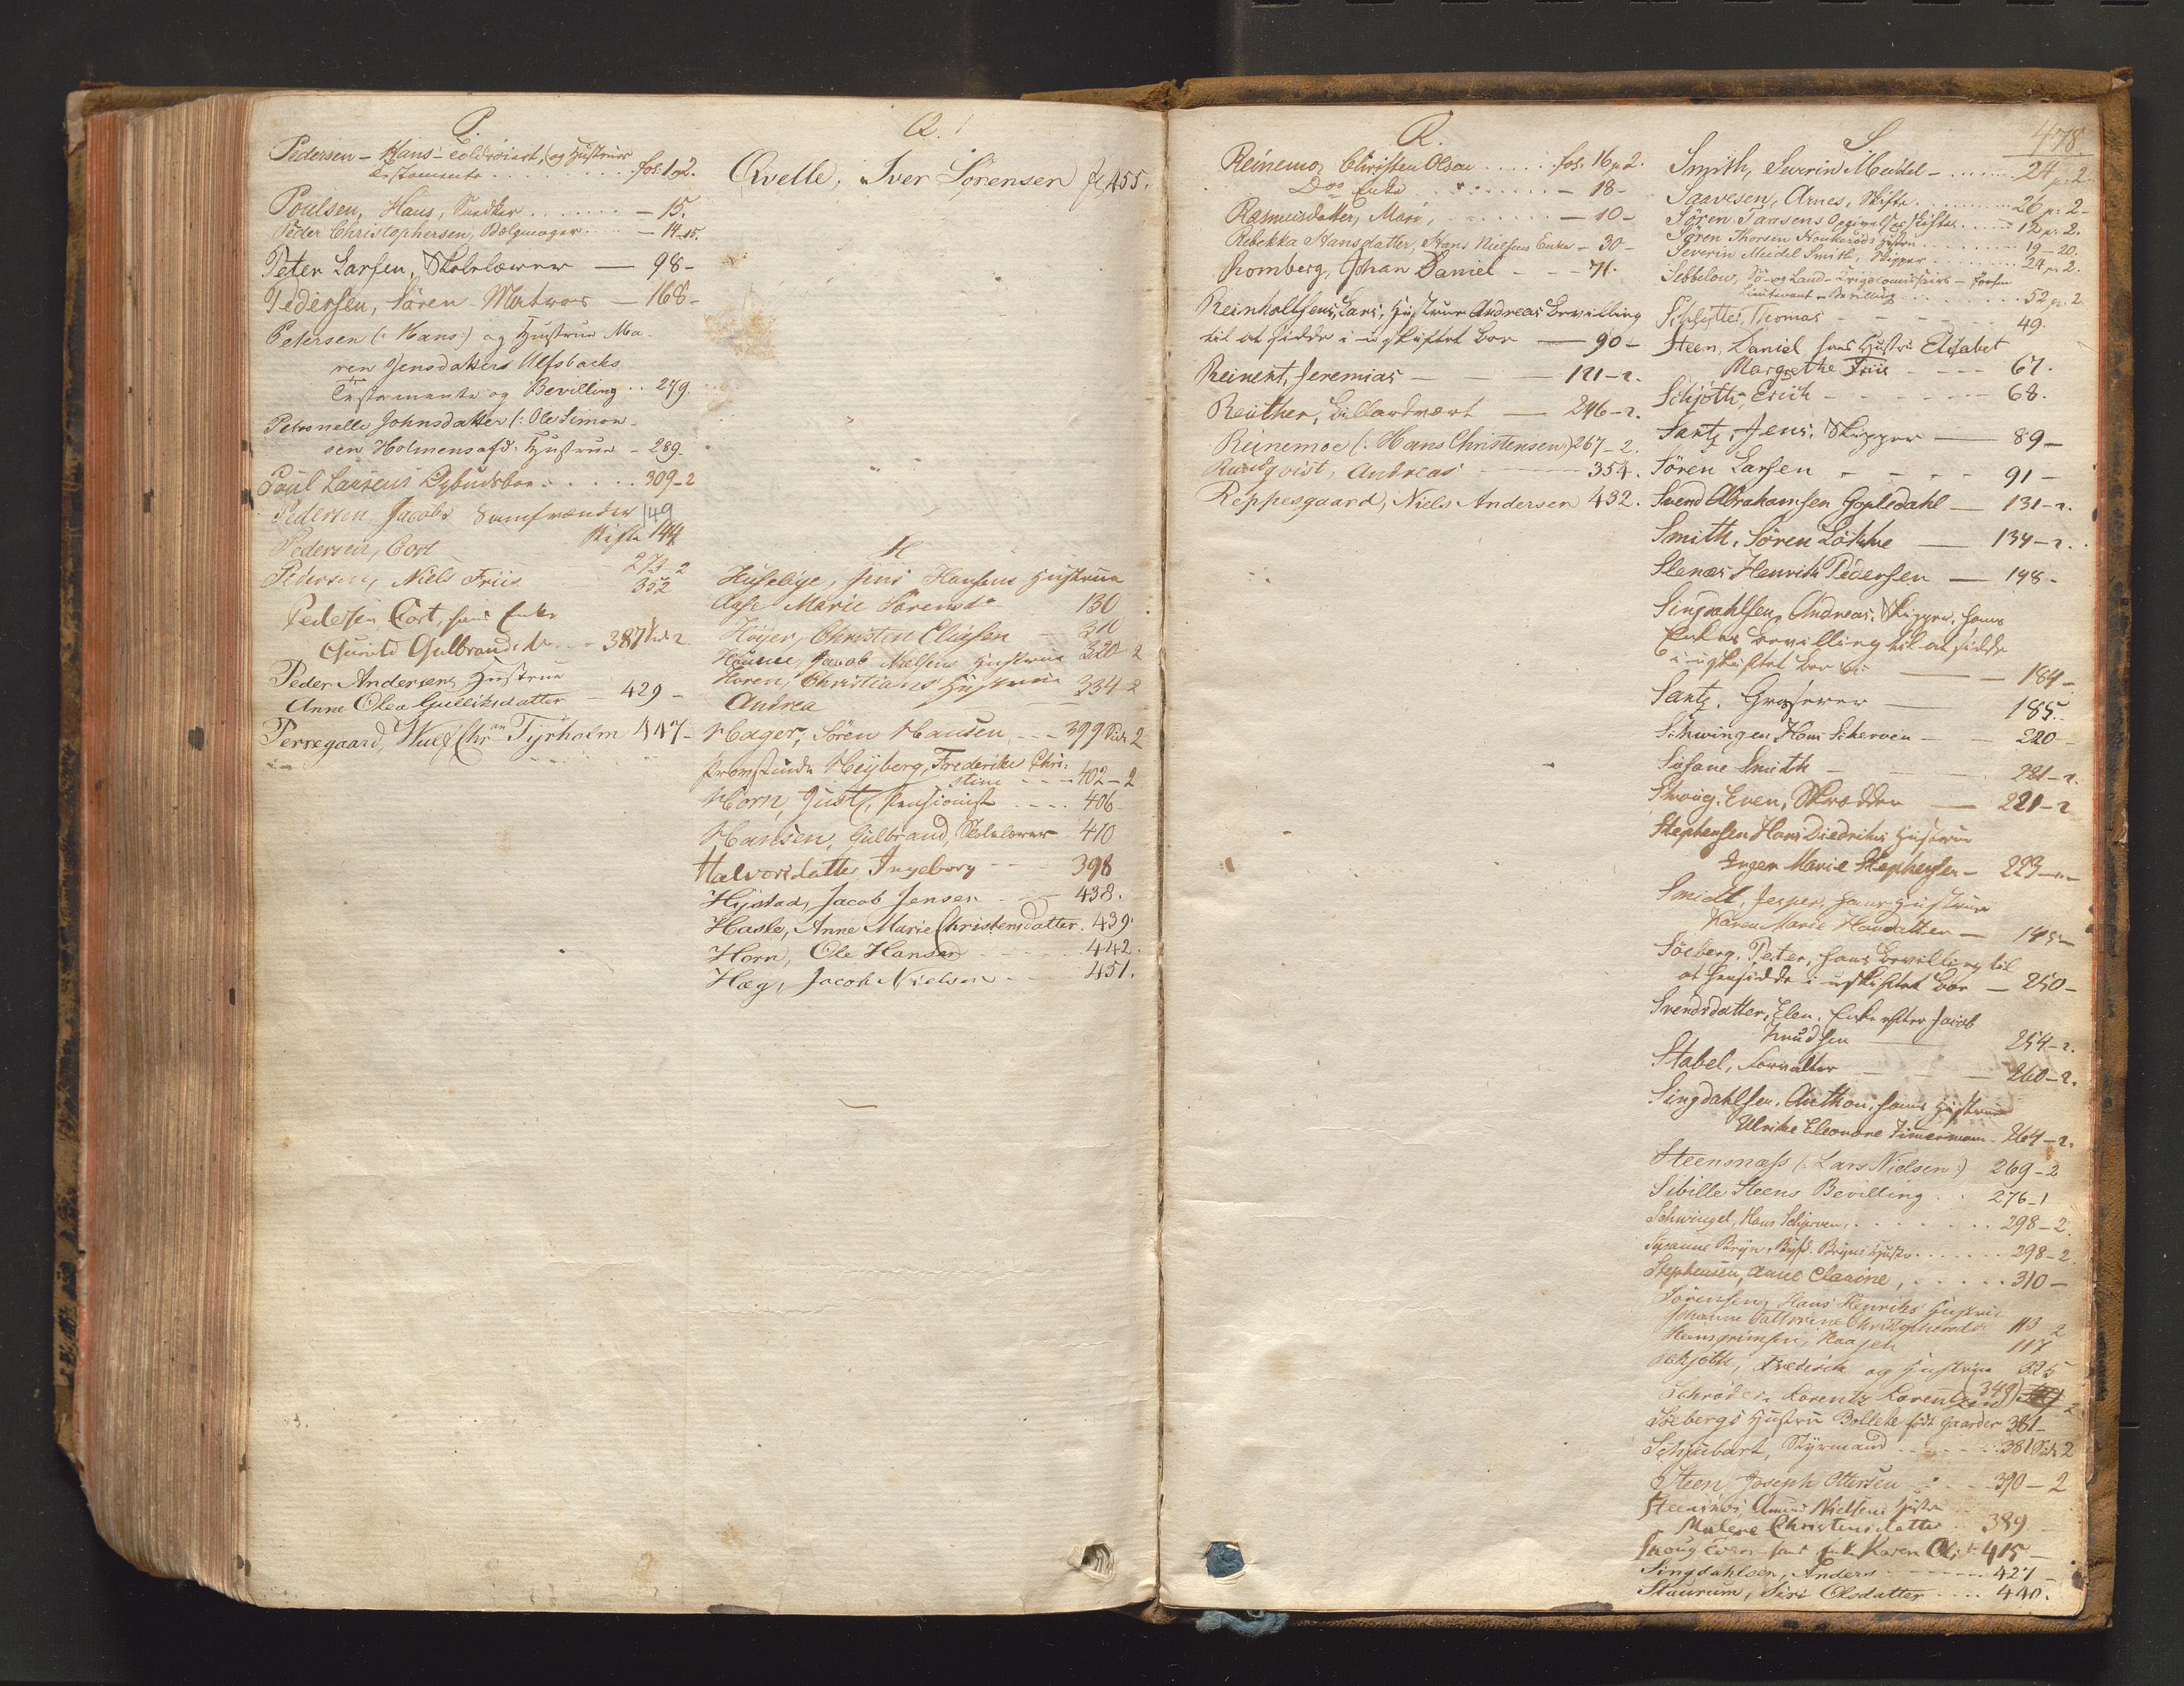 P.
Pedersen - Hans - Coldevient, og Hustrues
Testamente . . . . . . . . fol: 1 p 2.
Poulsen, Hans, Snedker . . . . . . — 15.
Peder Christophersen, Bælgmager . . . . — 14-15.
Peter Larsen, Skolelærer — 98 -
Pedersen, Sören Matros — 168 -
Petersen (: Hans :) og Hustrue Ma-
ren Jensdatters Alfsbacks
Testamente og Bevilling . . 279.
Petronelle Johnsdatter (: Ole Simon-
sen Holmens afd: Hustrue - 289.
Poul Larsens Opbudsboe . . . . . . 309-2
Pedersen, Jacobs Samfrænder 149
Skifte 144
Pedersen, Cort 273-2
Pedersen, Niels Friis 352
Pedersen Cort, hans Enke
Gunild Gulbrandsdr - - 387 Side 2
Peder Andersens Hustrue
Anne Olea Gulliksdatter — 429 -
Perregaard, Wulf Chran Tyrholm 447 -
Q.
Qvelle, Iver Sörensen fol 455.
H
Huselye, Jens Hansens Hustrue
Aase Marie Sörensdr 130
Höyer, Christen Eliasen — 310
Hanne, Jacob Nielsens Hustrue 320-2
Horen, Christians Hustrue
Andrea — — 334-2
Hager, Sören Hansen - - - 399 Side 2
Heyberg, Frederikke Chri-
stine - - - 402-2
Horn, Just, Pensionist . . . . 406
Hansen, Gulbrand, Skolelærer 410
Halvorsdatter Ingeborg - - - 398
Hystad, Jacob Jensen - - - 438.
Hasle, Anne Marie Christensdatter. 439.
Horn, Ole Hansen - - - - 442.
Hæg, Jacob Nielsen - - - 451.
R.
Reinemo, Christen Olsen . . . . . fol. 16 p 2.
Dos Enke . . . . . . . . — 18 -
Rasmusdatter, Mari, . . . . . . . — 10 -
Rebekka Hansdatter, Hans Nielsens Enke - 30 -
Romberg, Johan Daniel - - - 71.
Reinholtsens, Lars, Hustrue Andreas Bevilling
til at sidde i uskiftet Boe — 90 -
Reinert, Jeremias — — — 121-2.
Reuther, Billardvært — 246-2.
Reinemoe (: Hans Christensen) 267-2
Rundqvist, Andreas — 354.
Reppesgaard, Niels Andersen 432.
S.
478.
Smith, Severin Meidel - . . . . . . 24 p. 2
Saavesen, Arnes, Skifte . . . . . . . 26 p: 2 -
Sören Tansens Opgivelses Skifte . . . . . 12 p: 2.
Sören Thorsen Hankeröds Hustru . . . . . . 19-20.
Severin Meidel Smith, Skipper . . . . . . . 24 p: 2.
Sebbelow, Sö- og Land-Krigscommissairs -
Lieutenant Bevilling . . . . . . . . 52 p: 2.
Schlytter, Thomas - - - - - - 49.
Steen, Daniel hans Hustru Elisabet
Margrethe Friis - - - - 67.
Schjöth, Erich - - - - - - 68.
Santz, Jens, Skipper — 89 -
Sören Larsen - - - - - 91 -
Svend Abrahamsen Gopledahl — 131-2.
Smith, Sören Lökke — 134-2.
Stenæs Henrik Pedersen — 148 -
Singdahlsen, Andreas, Skipper, hans
Enkes Bevilling til at sidde
i uskiftet Boe — — 184 -
Santz, Grosserer — 185.
Schwingen Hans Scherven — 220 -
Susane Smith — — 281-2.
Skoug, Even, Skrædder — 221-2
Stephensen Hans Diedriks Hustrue
Inger Marie Stephensen - 223 -
Smidt, Jesper, hans Hustrue
Karen Marie Hansdatter — 145 -
Söeberg, Peter, hans Bevilling til
at hensidde i uskiftet Boe — 250 -
Svendsdatter, Elen, Enke efter Jacob
Knudsen — 254-2.
Stabel, Forvalter — — — 260-2.
Singdahlsen, Anthon, hans Hustrue
Ulrike Eleonore Timermann - 264-2.
Steensnæss (: Lars Nielsen :) 269-2
Sibille Steens Bevilling . . 276-1
Schwingel, Hans Schjerven, . . . . . . 298-2
Susanne Bryn, Byfd. Bryns Hustru . . . . . . 298-2
Stephensen, Anne Clasine, . . . . . 310 -
Sörensen, Hans Henriks Hustrue
Johanne Cathrine 113-2
Steensgrimsen, Haagen 117
Schjöth, Fredrich og Hustrue 325
Schröder, Lorentz Lorentzen (349) 2
Söebergs Hustru Bollete född Gaarder 361 -
Schubart, Styrmand . . . . . 381 Side 2
Steen Joseph Ottersen . . - 390-2
Steensnæs, Amund Nielsens Hustru
Malene Christensdatter . . 389
Skoug Even hans Enke Karen Olsdr 415 -
Singdahlsen, Anders - - - - - 427 -
Staurum, Siri Olsdatter . . . . 440.